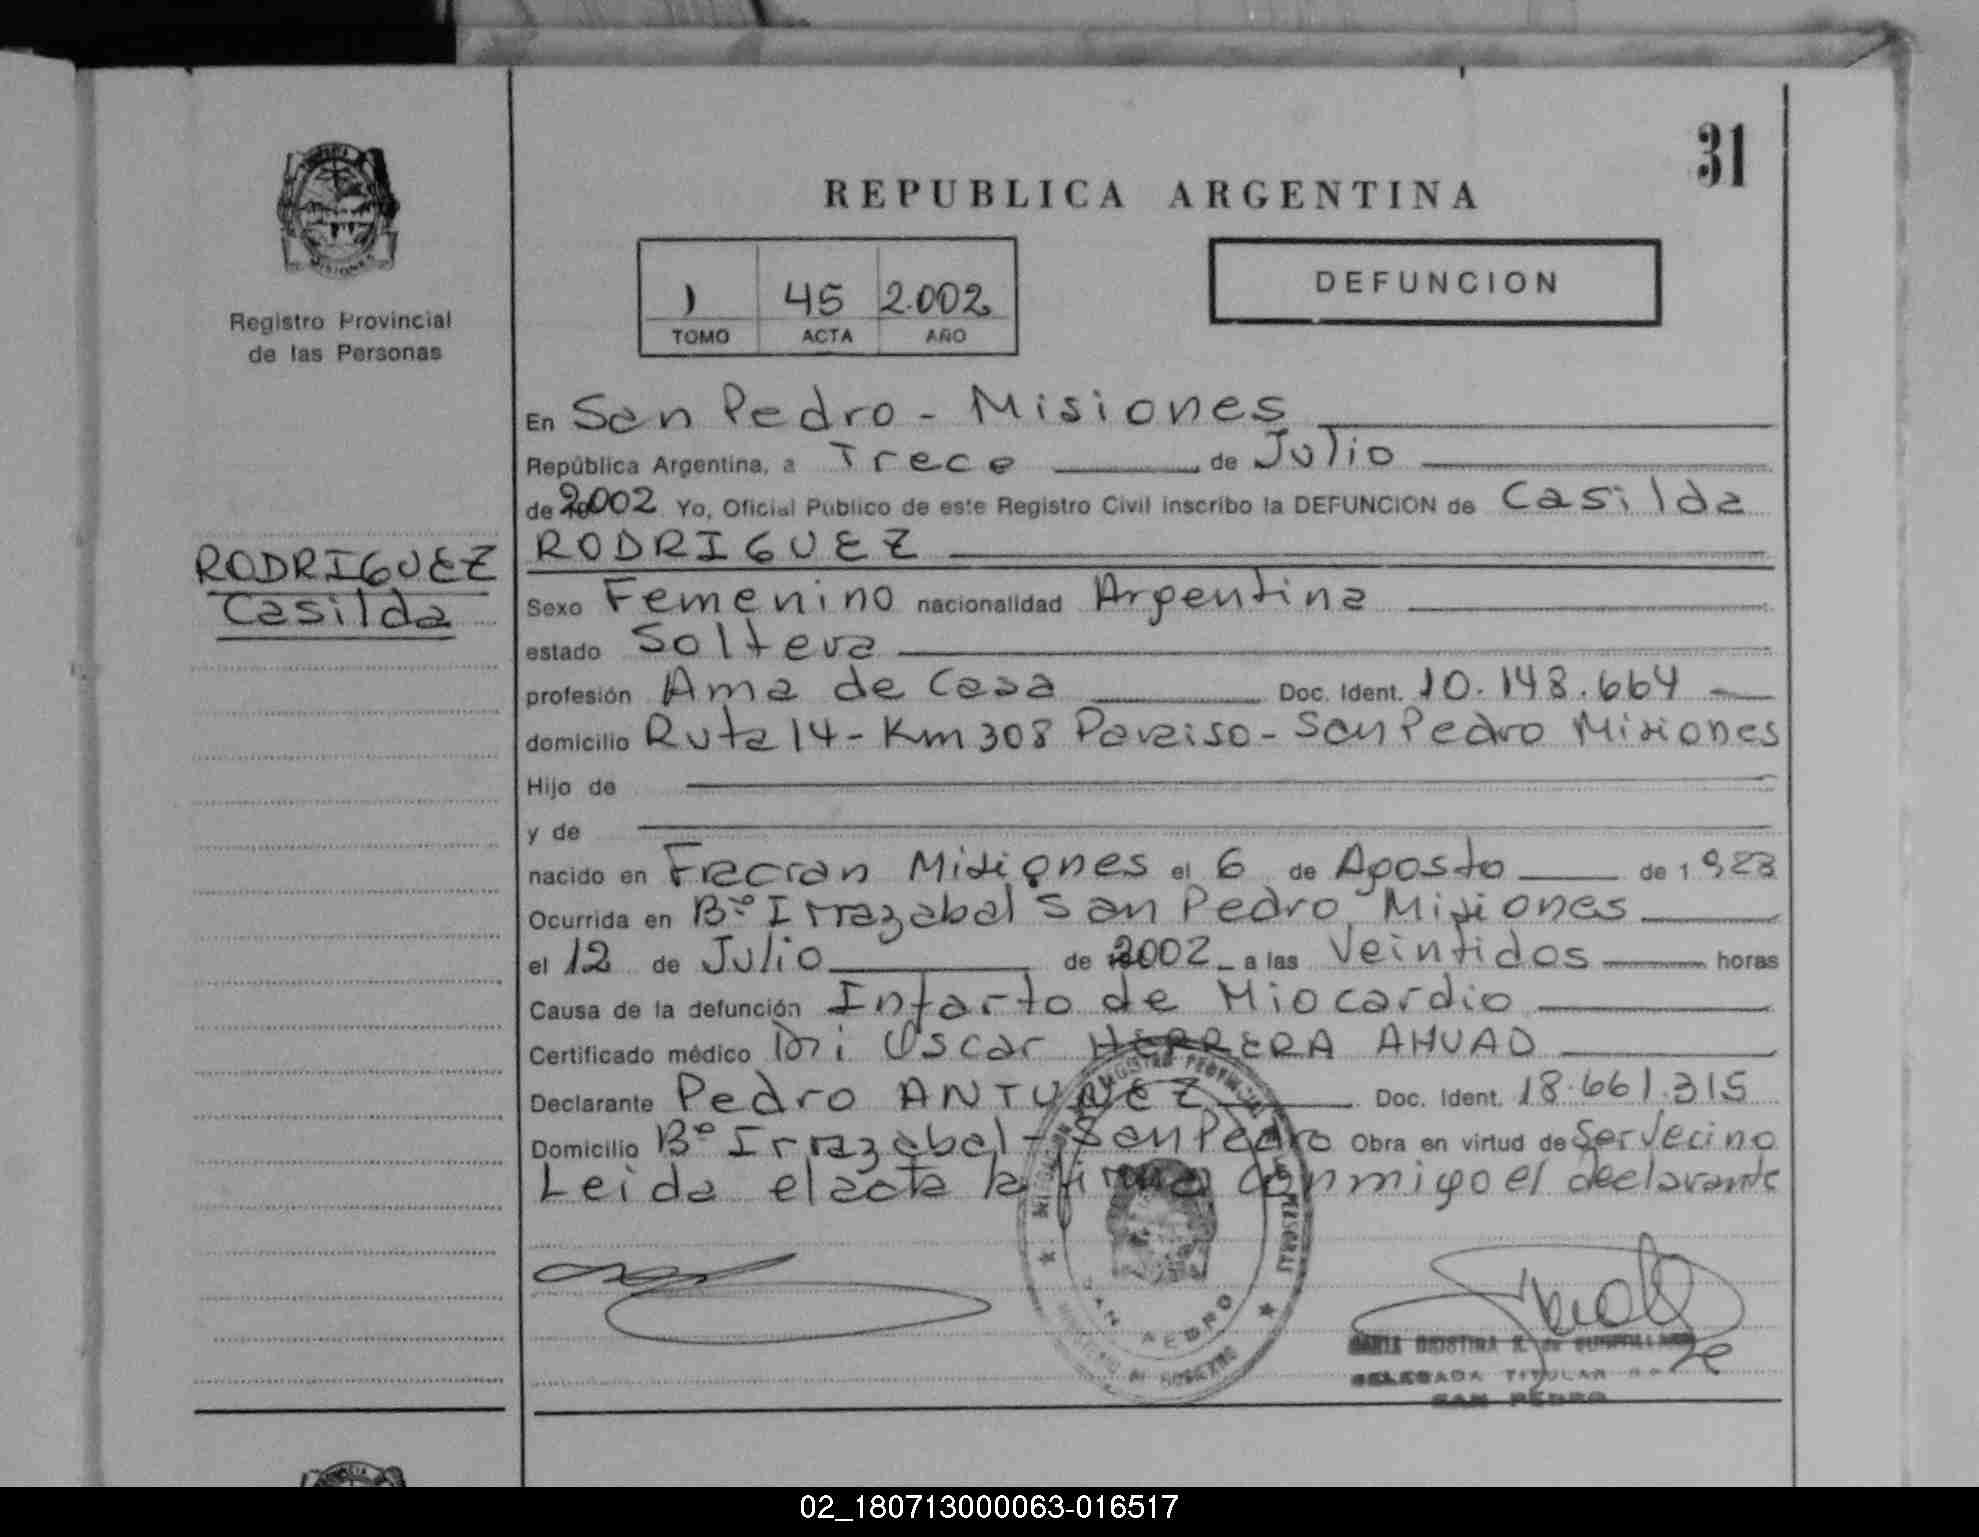 31
REPUBLICA ARGENTINA
1 45 2.002
TOMO ACTA AÑO
DEFUNCION
Registro Provincial
de las Personas
RODRIGUEZ
Casilda
En San Pedro - Misiones
República Argentina, a Trece de Julio
de 2002 Yo, Oficial Público de este Registro Civil inscribo la DEFUNCION de Casilda
RODRIGUEZ
Sexo Femenino nacionalidad Argentina
estado Soltera
profesión Ama de Casa Doc. Ident. 10.148.664
domicilio Ruta 14 - Km 308 Paraiso - San Pedro Misiones
Hijo de
y de
nacido en Fracran Misiones el 6 de Agosto de 1923
Ocurrida en Bº Irrazabal San Pedro Misiones
el 12 de Julio de 2002 a las Veintidos horas
Causa de la defunción Infarto de Miocardio
Certificado médico Oscar HERRERA AHUAD
Declarante Pedro ANTUNEZ Doc. Ident. 18.661.315
Domicilio Bº Irrazabal - San Pedro Obra en virtud de Ser Vecino
Leida el acta la firma conmigo el declarante
SAN PEDRO
DELEGADA TITULAR
SAN PEDRO
02_180713000063-016517